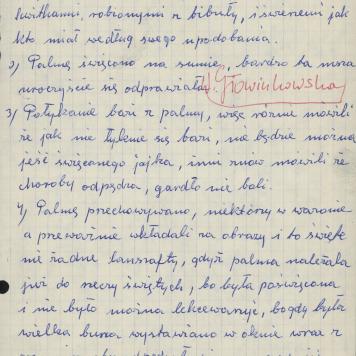 kwiatkami, robionymi z bibuły, i świerciami jak
kto miał według swego upodobania.
2) Palmę święcono na sumie, bardzo ta msza
uroczyście się odprawiała.
3) Połykanie bazi z palmy, więc różnie mówili
że jak nie łyknie się bazi, nie będzie można
jeść święconego jajka, inni znów mówili że
choroby odpędza, gardło nie boli.
4) Palmę przechowywano, niektórzy w wazonie
a przeważnie wkładali za obrazy i to święte
nie żadne lanszafty, gdyż palma należała
już do rzeczy świętych, bo była poświęcona
i nie było można lekceważyć, bo gdy była
wielka burza wystawiano w oknie wraz z